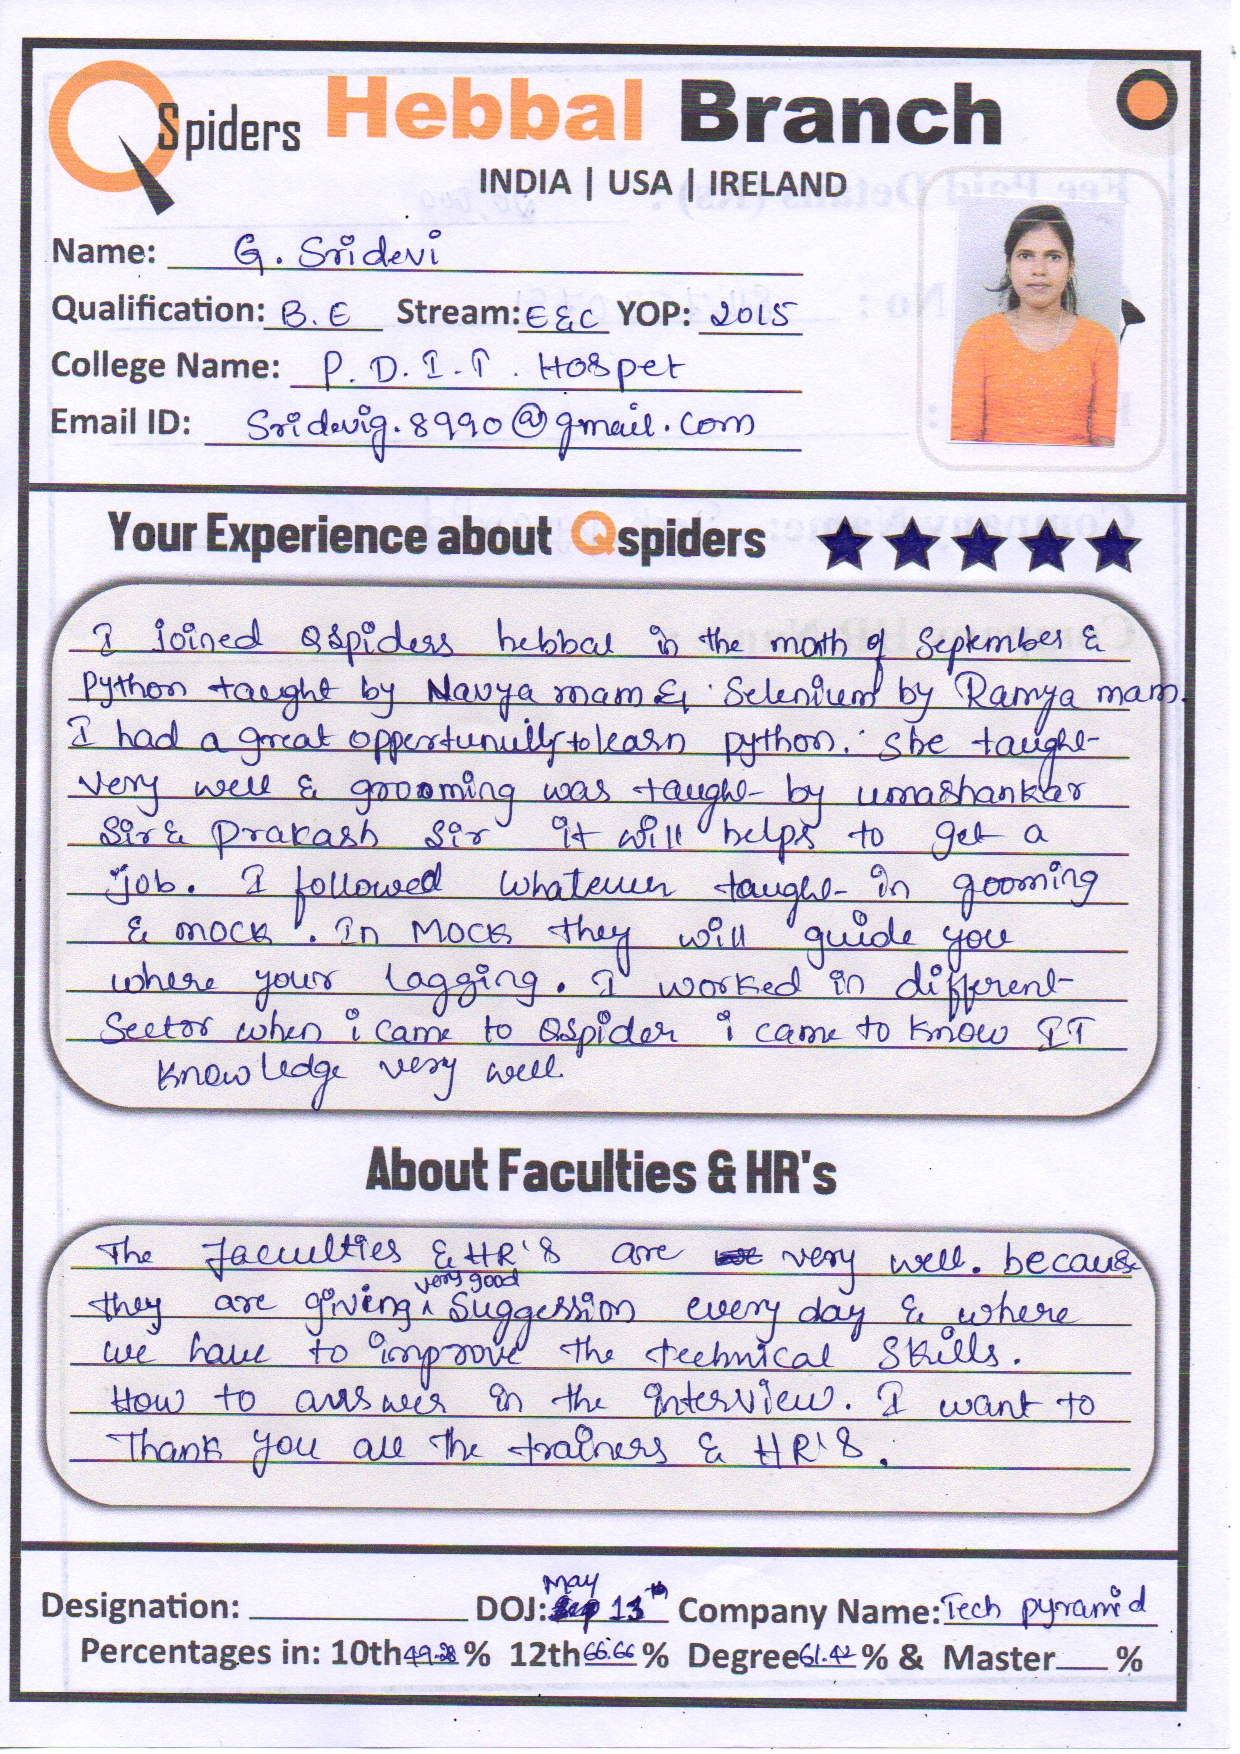 Qspiders Hebbal Branch
INDIA | USA | IRELAND
Name: G. Sridevi
Qualification: B.E Stream: E&C YOP: 2015
College Name: P.D.I.T. Hospet
Email ID: Sridevig.8990@gmail.com
Your Experience about Qspiders
I joined Qspiders hebbal in the month of September &
Python taught by Navya mam & Selenium by Ramya mam.
I had a great oppertunuity to learn python. She taught
very well & grooming was taught by umashankar
Sir & Prakash Sir it will helps to get a
job. I followed whatever taught in gooming
& mock. In Mock they will guide you
where your lagging. I worked in different
Sector when i came to Qspider i came to know IT
knowledge very well
About Faculties & HR's
The faculties & HR's are very well. because
they are giving very good Suggession every day & where
we have to improve the technical Skills.
How to answer in the interview. I want to
Thank you all the trainers & HR's.
Designation: DOJ: May 13th Company Name: Tech pyramid
Percentages in: 10th 49.28 % 12th 66.66 % Degree 61.42 % & Master %